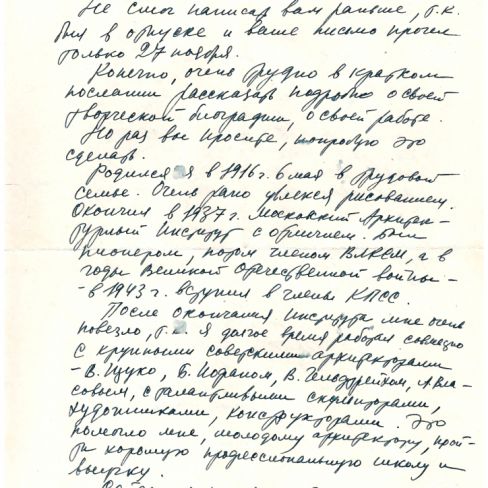 Не смог написать вам раньше, т.к.
был в отпуске и ваше письмо прочел
только 27 ноября.
Конечно, очень трудно в кратком
послании рассказать подробно о своей
творческой биографии, о своей работе.
Но раз вы просите, попробую это
сделать.
Родился я в 1916 г. 6 мая в трудовой
семье. Очень рано увлекся рисованием.
Окончил в 1937 г. Московский Архитек-
турный Институт с отличием. Был
пионером, потом членом ВЛКСМ, а в
годы Великой Отечественной войны -
- в 1943 г. вступил в члены КПСС.
После окончания Института мне очень
повезло, т.к. я долгое время работал совместно
с крупными советскими архитекторами
- В. Щуко, Б. Иофаном, В. Гельфрейхом, А. Вла-
совым, с талантливыми скульпторами,
художниками, конструкторами. Это
помогло мне, молодому архитектору, прой-
ти хорошую профессиональную школу и
выучку.